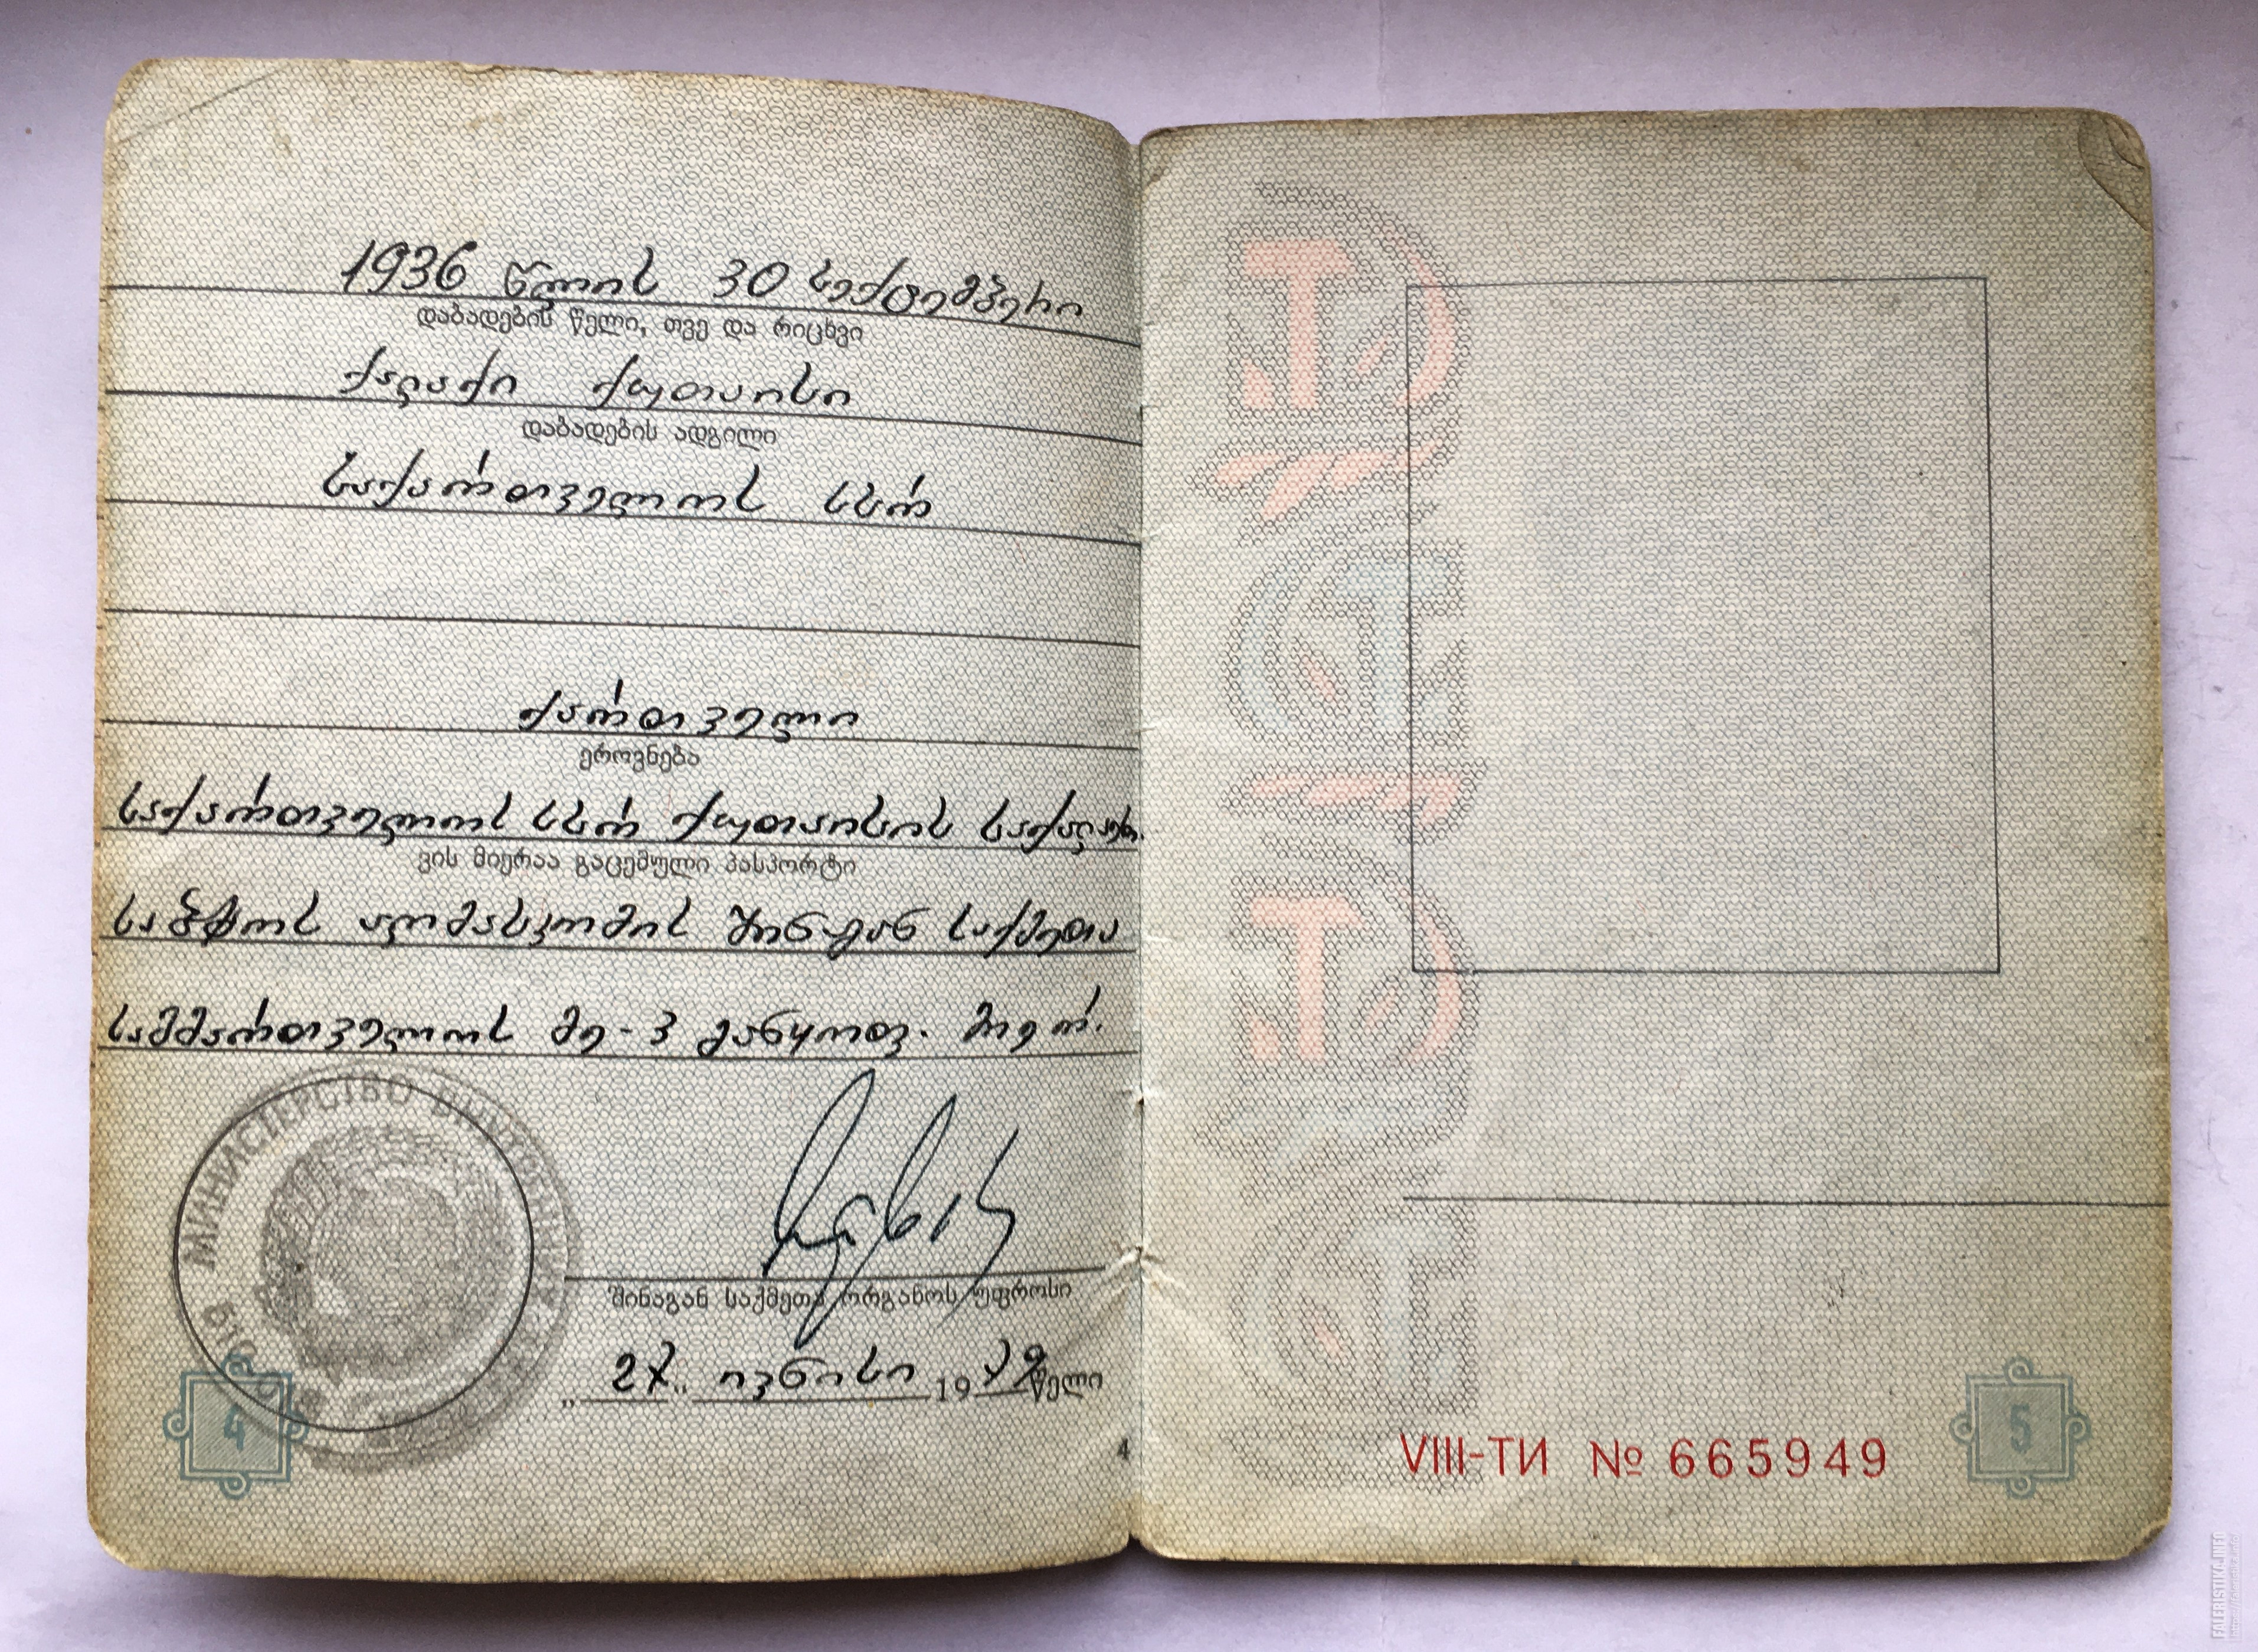 1936 წლის 30 სექტემბერი
დაბადების წელი, თვე და რიცხვი
ქალაქი ქუთაისი
დაბადების ადგილი
საქართველოს სსრ
ქართველი
ეროვნება
საქართველოს სსრ ქუთაისის საქალაქ.
ვის მიერაა გაცემული პასპორტი
საბჭოს აღმასკომის შინაგან საქმეთა
სამმართველოს მე-3 განყოფ. მიერ.
МИНИСТЕРСТВО ВНУТРЕННИХ
შინაგან საქმეთა ორგანოს უფროსი
„27" ივნისი 1979 წელი
4
4
VIII-ТИ № 665949
5
FALERISTIKA.INFO